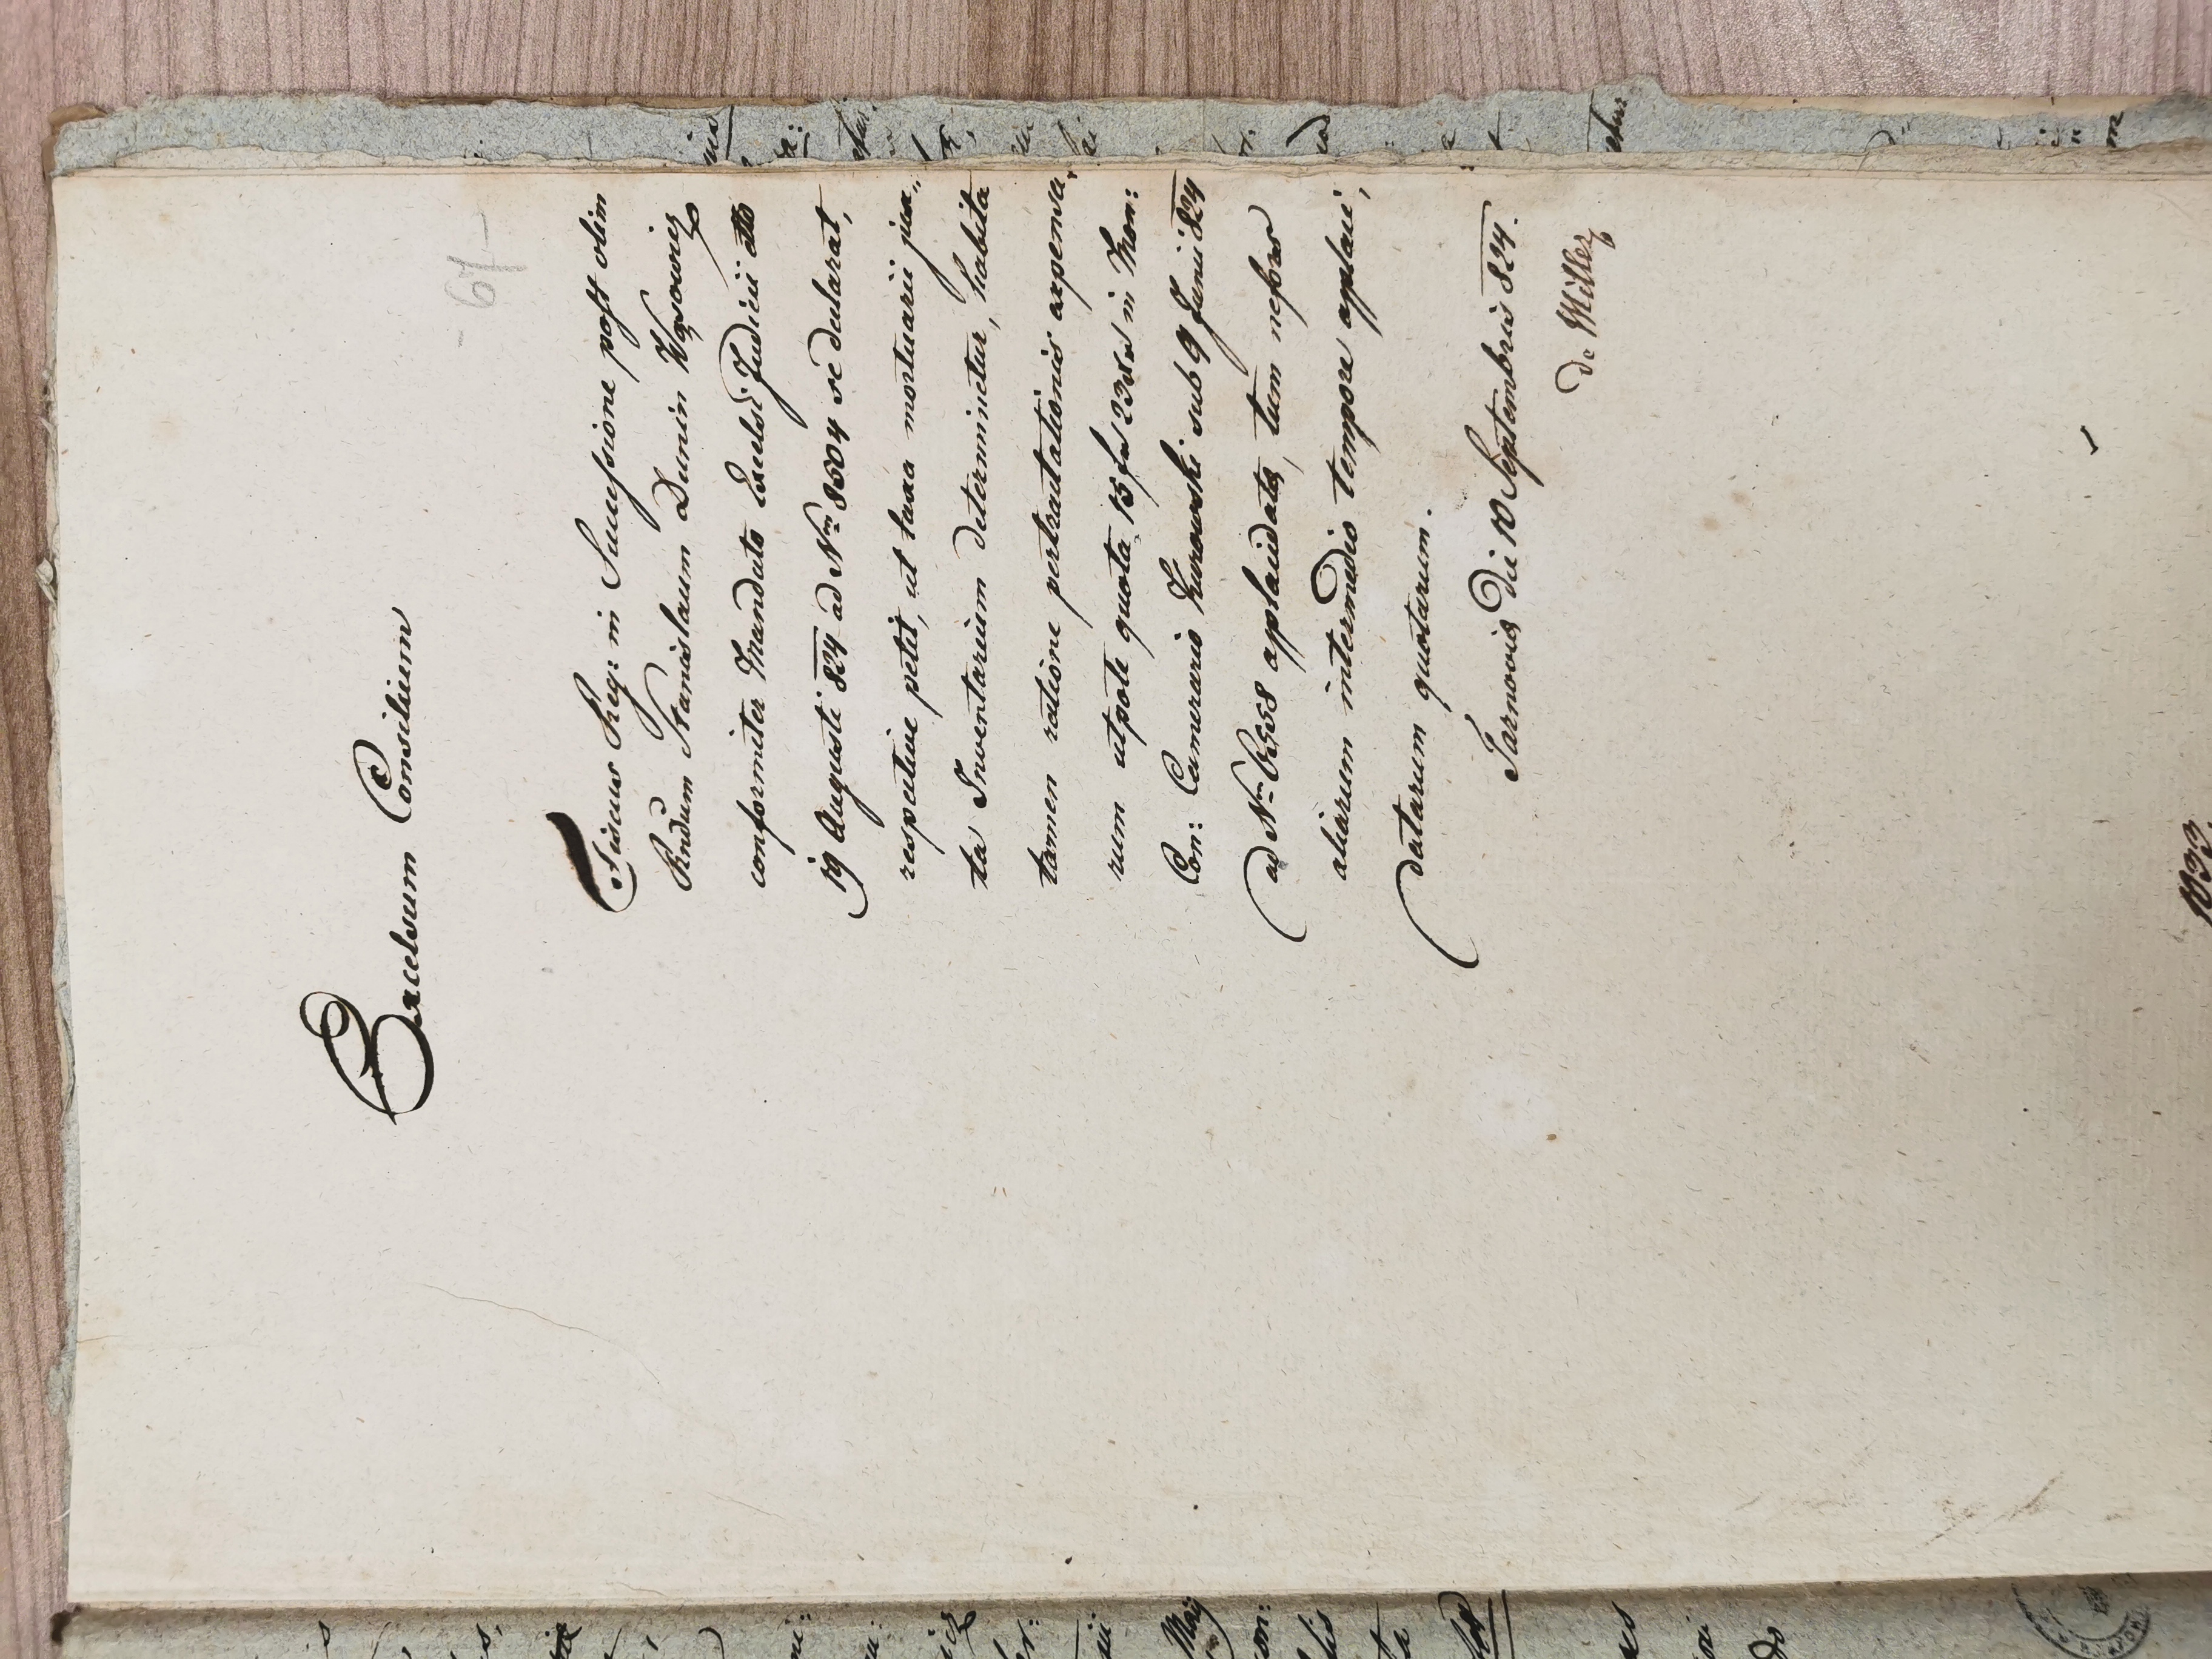 67
Excelsum Consilium
Fiscus Reg: in Successione post olim
Rndum Stanislaum Dunin Wąsowicz
conformiter Mandato Excelsi Judicii dtto
19 Augusti 824 ad Nrm 8504 se declarat,
respective petit, ut taxa mortuarii jux„
ta Inventarium determinetur, habita
tamen ratione pertractationis expensa„
rum utpote quota 15 fr 23 xr in Mon:
Con: Camerario Kurowski sub 9 Junii 824
ad Nrm applacidata, tum nefors
aliarum intermedio tempore applaci„
datarum quotarum.
Tarnovia Die 10 Septembris 824.
de Miller